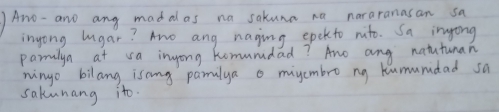 ) Ano-ano ang madalas na sakuna na nararanasan sa
inyong lugar? Ano ang naging epekto nito. Sa inyong
pamilya at sa inyong komunidad? Ano ang natutunan
ninyo bilang isang pamilya o miyembro ng kumunidad sa
sakunang ito.